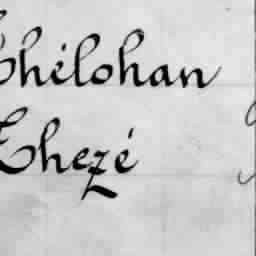 Chélohan
Chezé